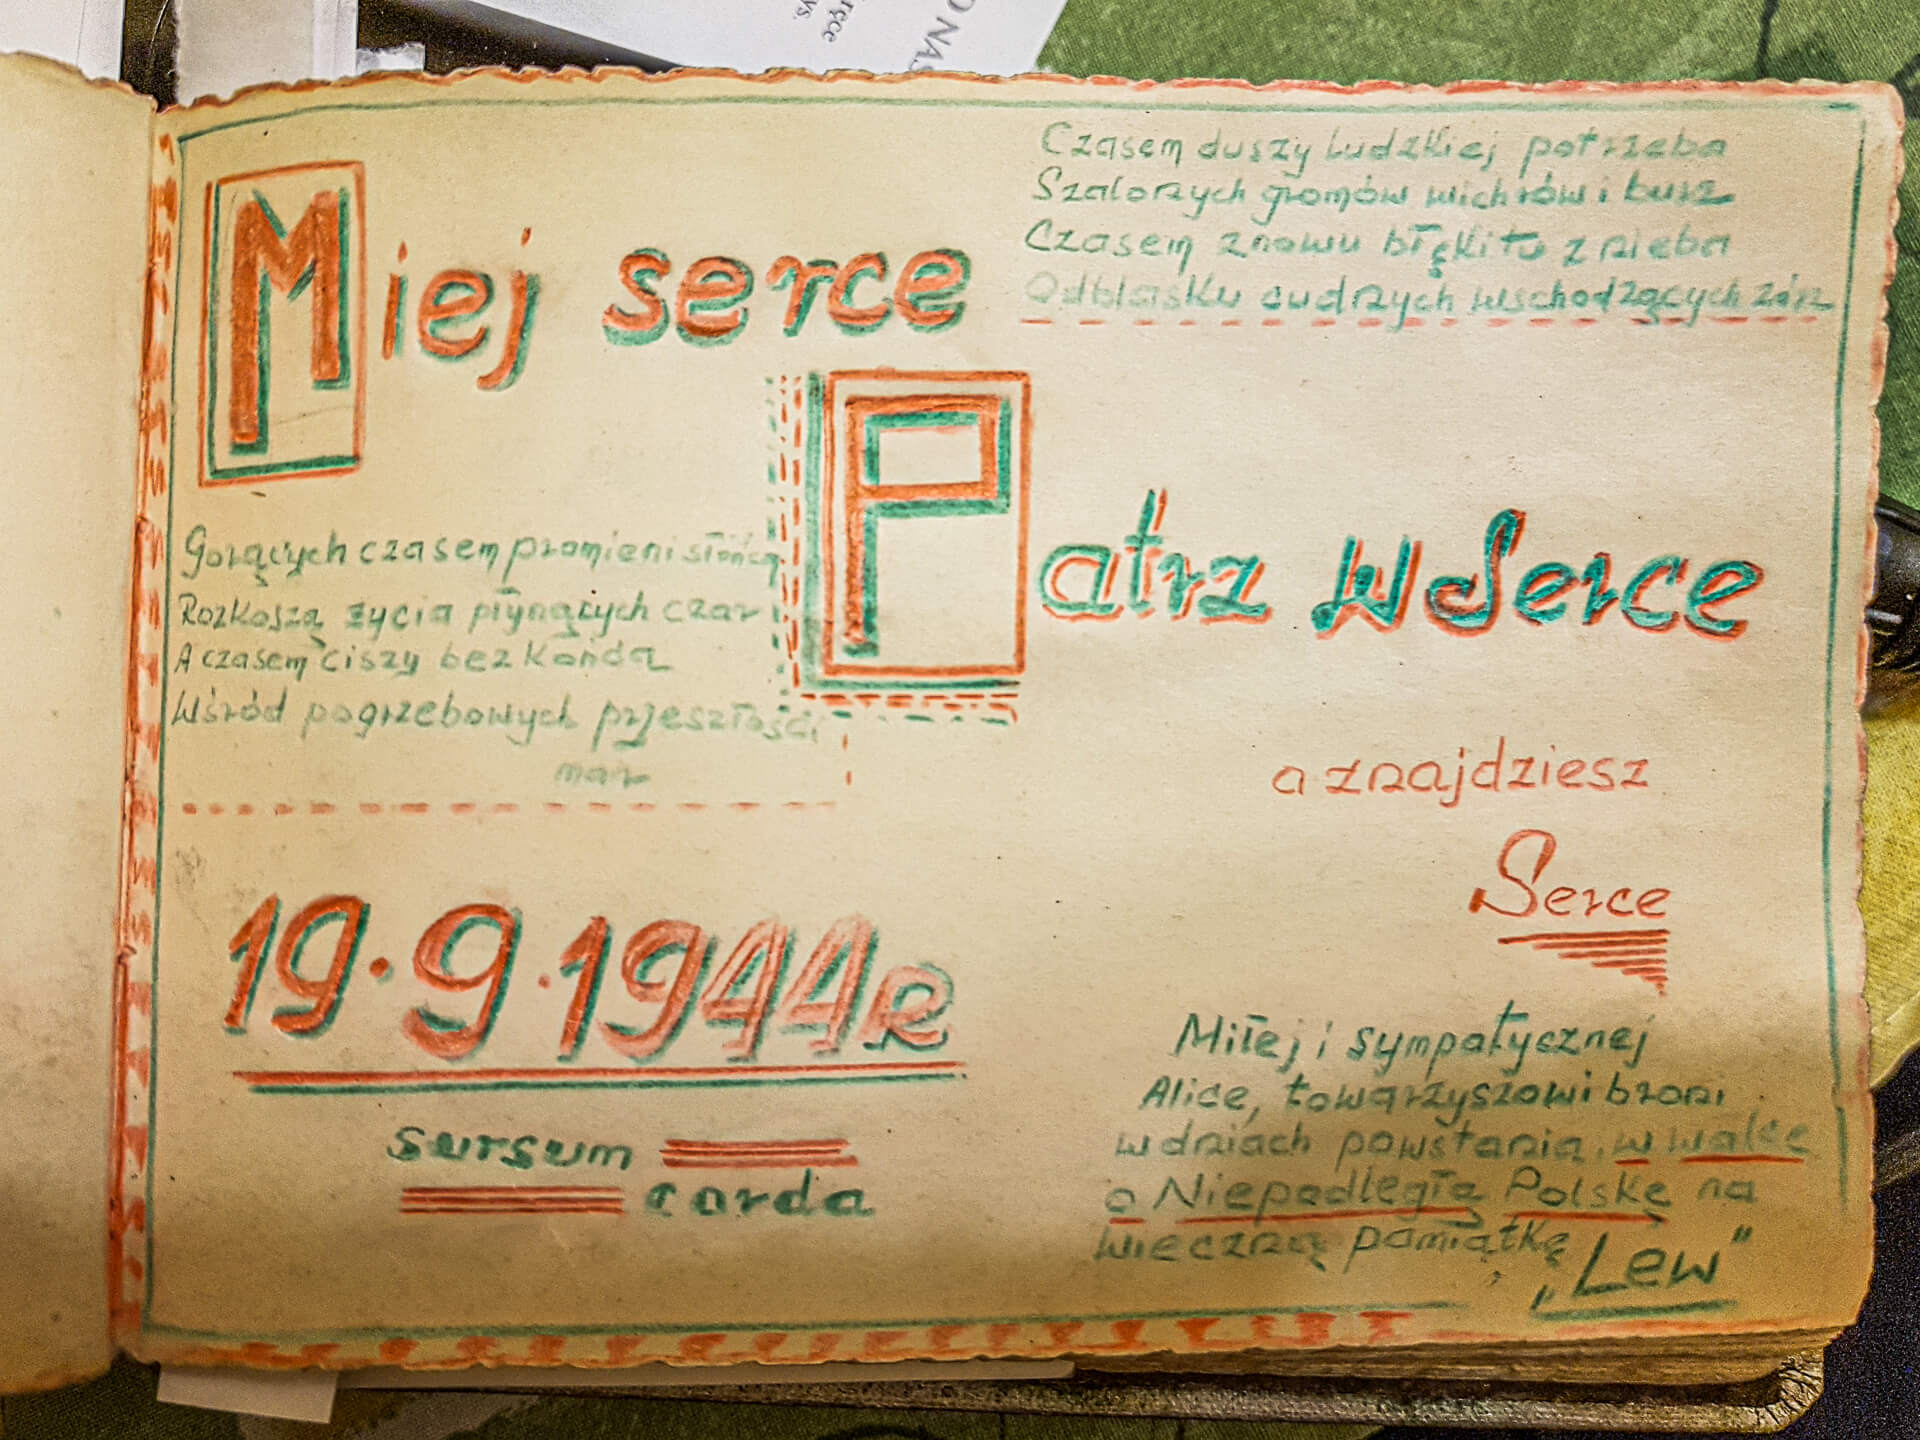 ręce
O NAS
Czasem duszy ludzkiej potrzeba
Szalonych gromów wichrów i burz
Czasem znowu błękitu z nieba
Odblasku cudnych wschodzących zórz
Miej serce
Patrz w Serce
Gorących czasem promieni słońca
Rozkoszą życia płynących czar
A czasem ciszy bez końca
Wśród pogrzebowych przeszłości
mar
a znajdziesz
Serce
19.9.1944R
sursum
corda
Miłej i sympatycznej
Alice, towarzyszowi broni
w dniach powstania, w walce
o Niepodległą Polskę na
wieczną pamiątkę
„Lew"